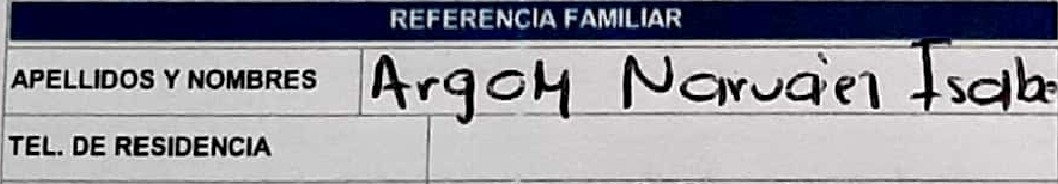 REFERENCIA FAMILIAR
APELLIDOS Y NOMBRES Argoty Narváez Isabe
TEL. DE RESIDENCIA